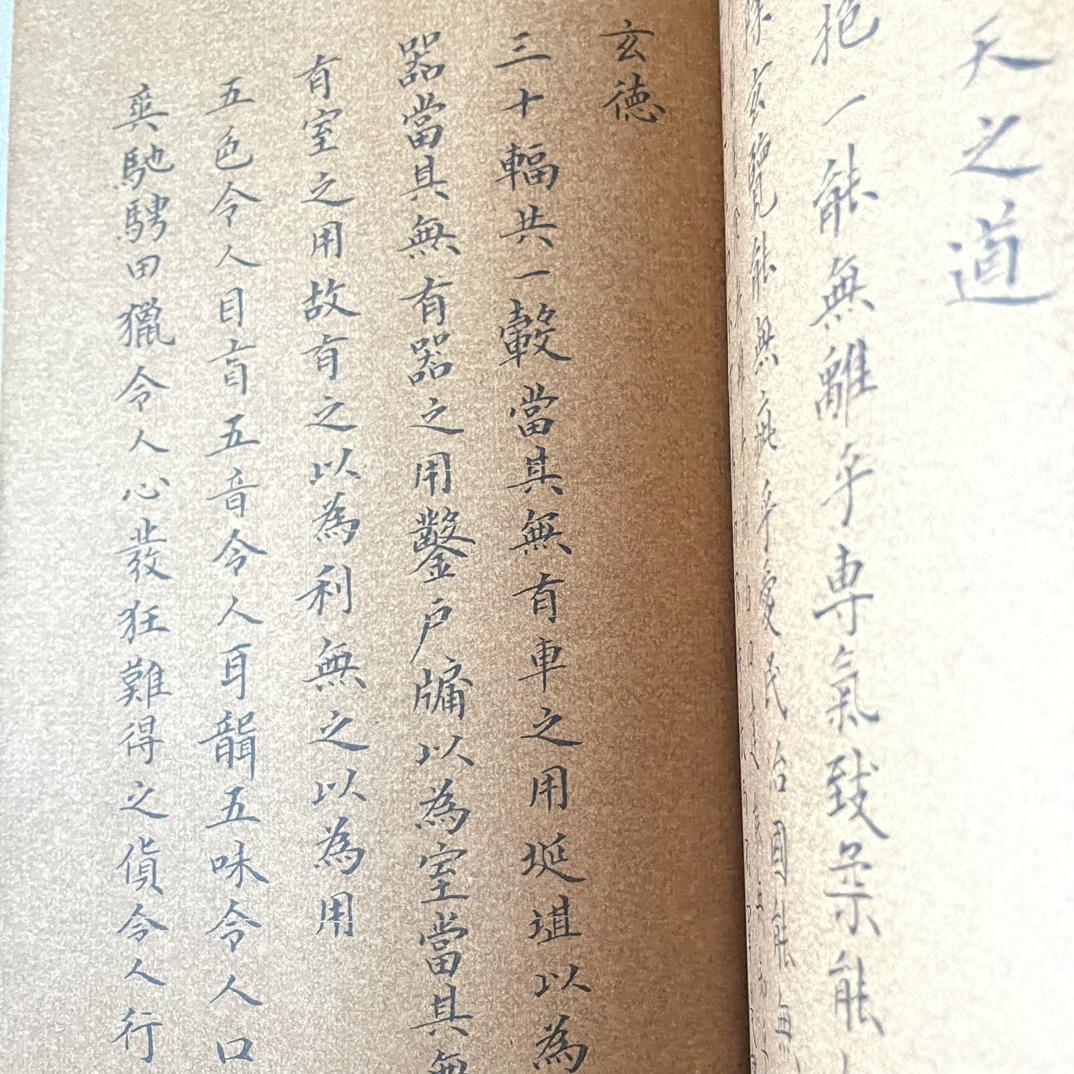 天之道
抱一能無離乎専氣致柔能
除玄覽能無疵乎愛民治國能無
玄德
三十輻共一轂當其無有車之用埏埴以為
器當其無有器之用鑿戶牖以為室當其無
有室之用故有之以為利無之以為用
五色令人目盲五音令人耳聾五味令人口
爽馳騁田獵令人心發狂難得之貨令人行